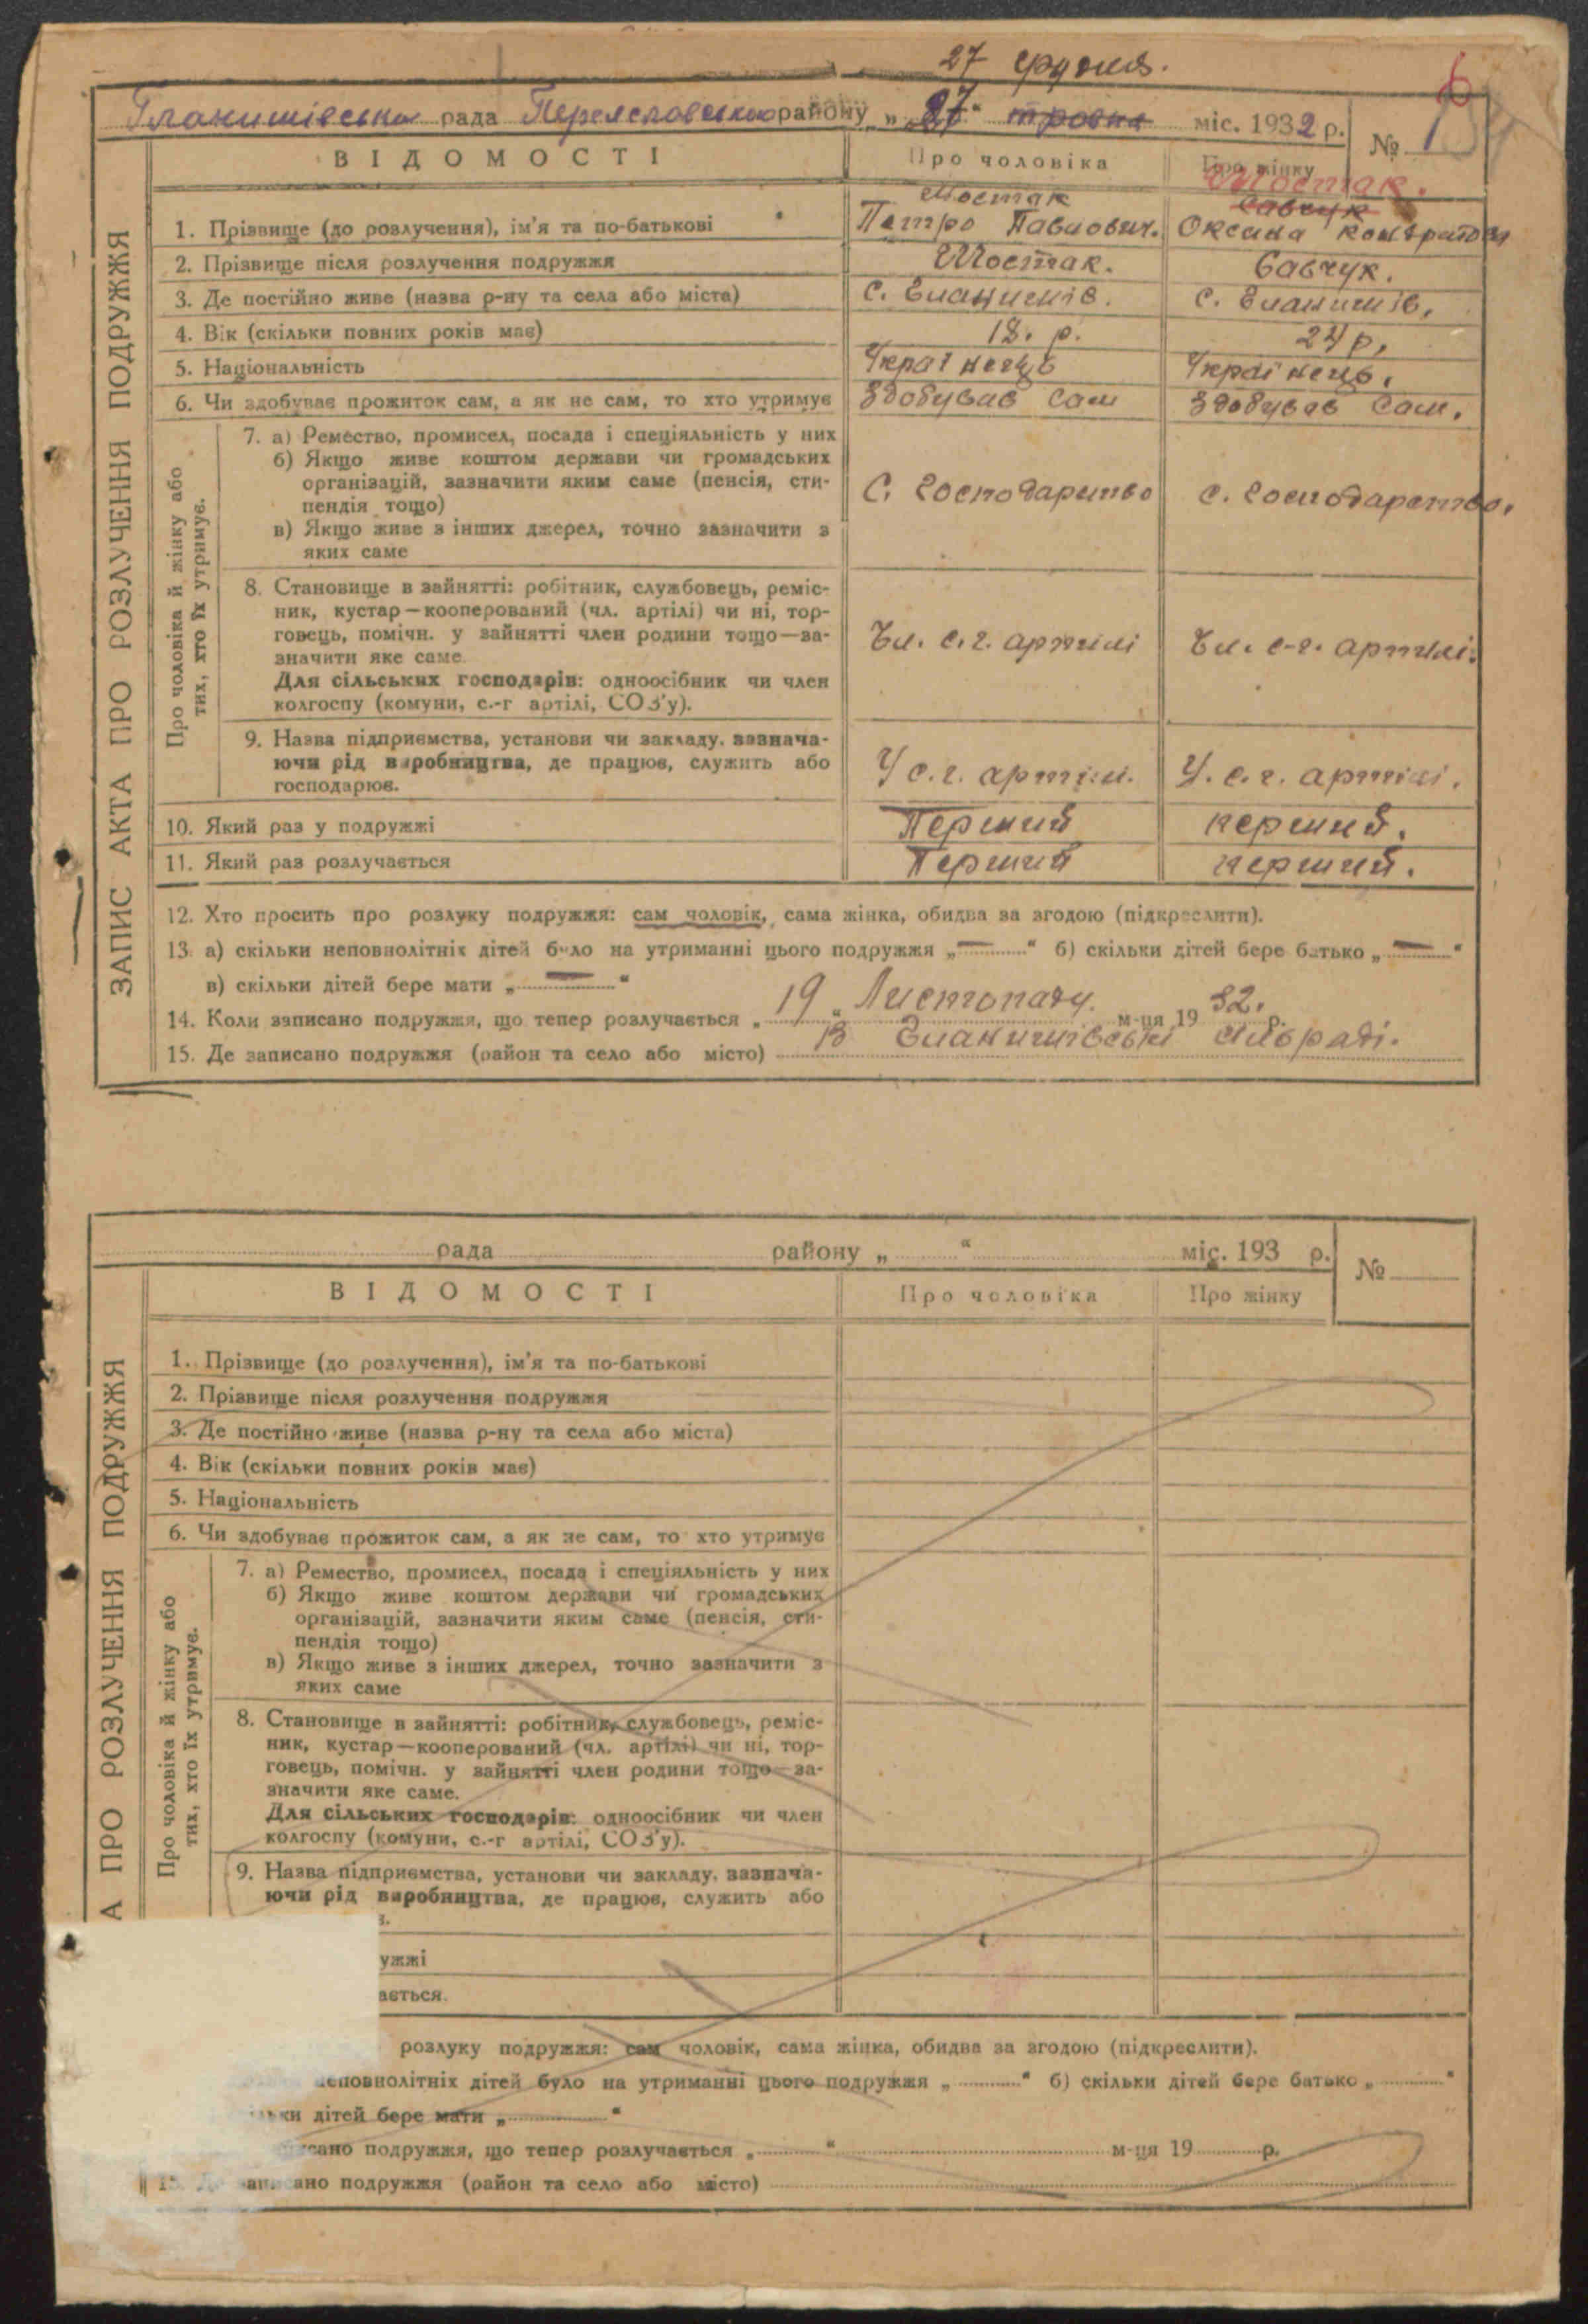 27 грудня.
Гланишівська рада Переяславського району „27“ травня міс. 1932 р. №
ВІДОМОСТІ Про чоловіка Про жінку
Шостак Шостак.
Савчук
1. Прізвище (до розлучення), ім'я та по-батькові Петро Павлович. Оксана Кондратовн
2. Прізвище після розлучення подружжя Шостак. Савчук.
3. Де постійно живе (назва р-ну та села або міста) С. Гланишів. С. Гланишів.
4. Вік (скільки повних років має) 18. р. 24 р.
5. Національність Українець Українець.
6. Чи здобуває прожиток сам, а як не сам, то хто утримує Здобуває Сам Здобуває Сам.
ЗАПИС АКТА ПРО РОЗЛУЧЕННЯ ПОДРУЖЖЯ
Про чоловіка й жінку або
тих, хто їх утримує.
7. а) Ремество, промисел, посада і спеціяльність у них
б) Якщо живе коштом держави чи громадських
організацій, зазначити яким саме (пенсія, сти-
пендія тощо)
С. Господарство С. Господарство.
в) Якщо живе з інших джерел, точно зазначити з
яких саме
8. Становище в зайнятті: робітник, службовець, реміс-
ник, кустар—кооперований (чл. артілі) чи ні, тор-
говець, помічн. у зайнятті член родини тощо—за-
значити яке саме.
Чл. с.г. артілі Чл. с-г. артілі.
Для сільських господарів: одноосібник чи член
колгоспу (комуни, с.-г артілі, СОЗ'у).
9. Назва підприємства, установи чи закладу, зазнача-
ючи рід виробництва, де працює, служить або
господарює.
У с.г. артілі. У. с.г. артілі.
10. Який раз у подружжі Перший перший.
11. Який раз розлучається Перший перший.
12. Хто просить про розлуку подружжя: сам чоловік, сама жінка, обидва за згодою (підкреслити).
13. а) скільки неповнолітніх дітей було на утриманні цього подружжя „—“ б) скільки дітей бере батько „—“
в) скільки дітей бере мати „—“
14. Коли записано подружжя, що тепер розлучається „19“ Листопаду. м-ця 1932. р.
15. Де записано подружжя (район та село або місто) В Гланишівські сільраді.
рада району „ “ міс. 193 р. №
ВІДОМОСТІ Про чоловіка Про жінку
1. Прізвище (до розлучення), ім'я та по-батькові
2. Прізвище після розлучення подружжя
3. Де постійно живе (назва р-ну та села або міста)
4. Вік (скільки повних років має)
5. Національність
6. Чи здобуває прожиток сам, а як не сам, то хто утримує
А ПРО РОЗЛУЧЕННЯ ПОДРУЖЖЯ
Про чоловіка й жінку або
тих, хто їх утримує.
7. а) Ремество, промисел, посада і спеціяльність у них
б) Якщо живе коштом держави чи громадських
організацій, зазначити яким саме (пенсія, сти-
пендія тощо)
в) Якщо живе з інших джерел, точно зазначити з
яких саме
8. Становище в зайнятті: робітник, службовець, реміс-
ник, кустар—кооперований (чл. артілі) чи ні, тор-
говець, помічн. у зайнятті член родини тощо—за-
значити яке саме.
Для сільських господарів: одноосібник чи член
колгоспу (комуни, с.-г артілі, СОЗ'у).
9. Назва підприємства, установи чи закладу, зазнача-
ючи рід виробництва, де працює, служить або
ужжі
ається.
розлуку подружжя: сам чоловік, сама жінка, обидва за згодою (підкреслити).
неповнолітніх дітей було на утриманні цього подружжя „ “ б) скільки дітей бере батько „ “
ки дітей бере мати „ “
сано подружжя, що тепер розлучається „ “ м-ця 19 р.
ано подружжя (район та село або місто)